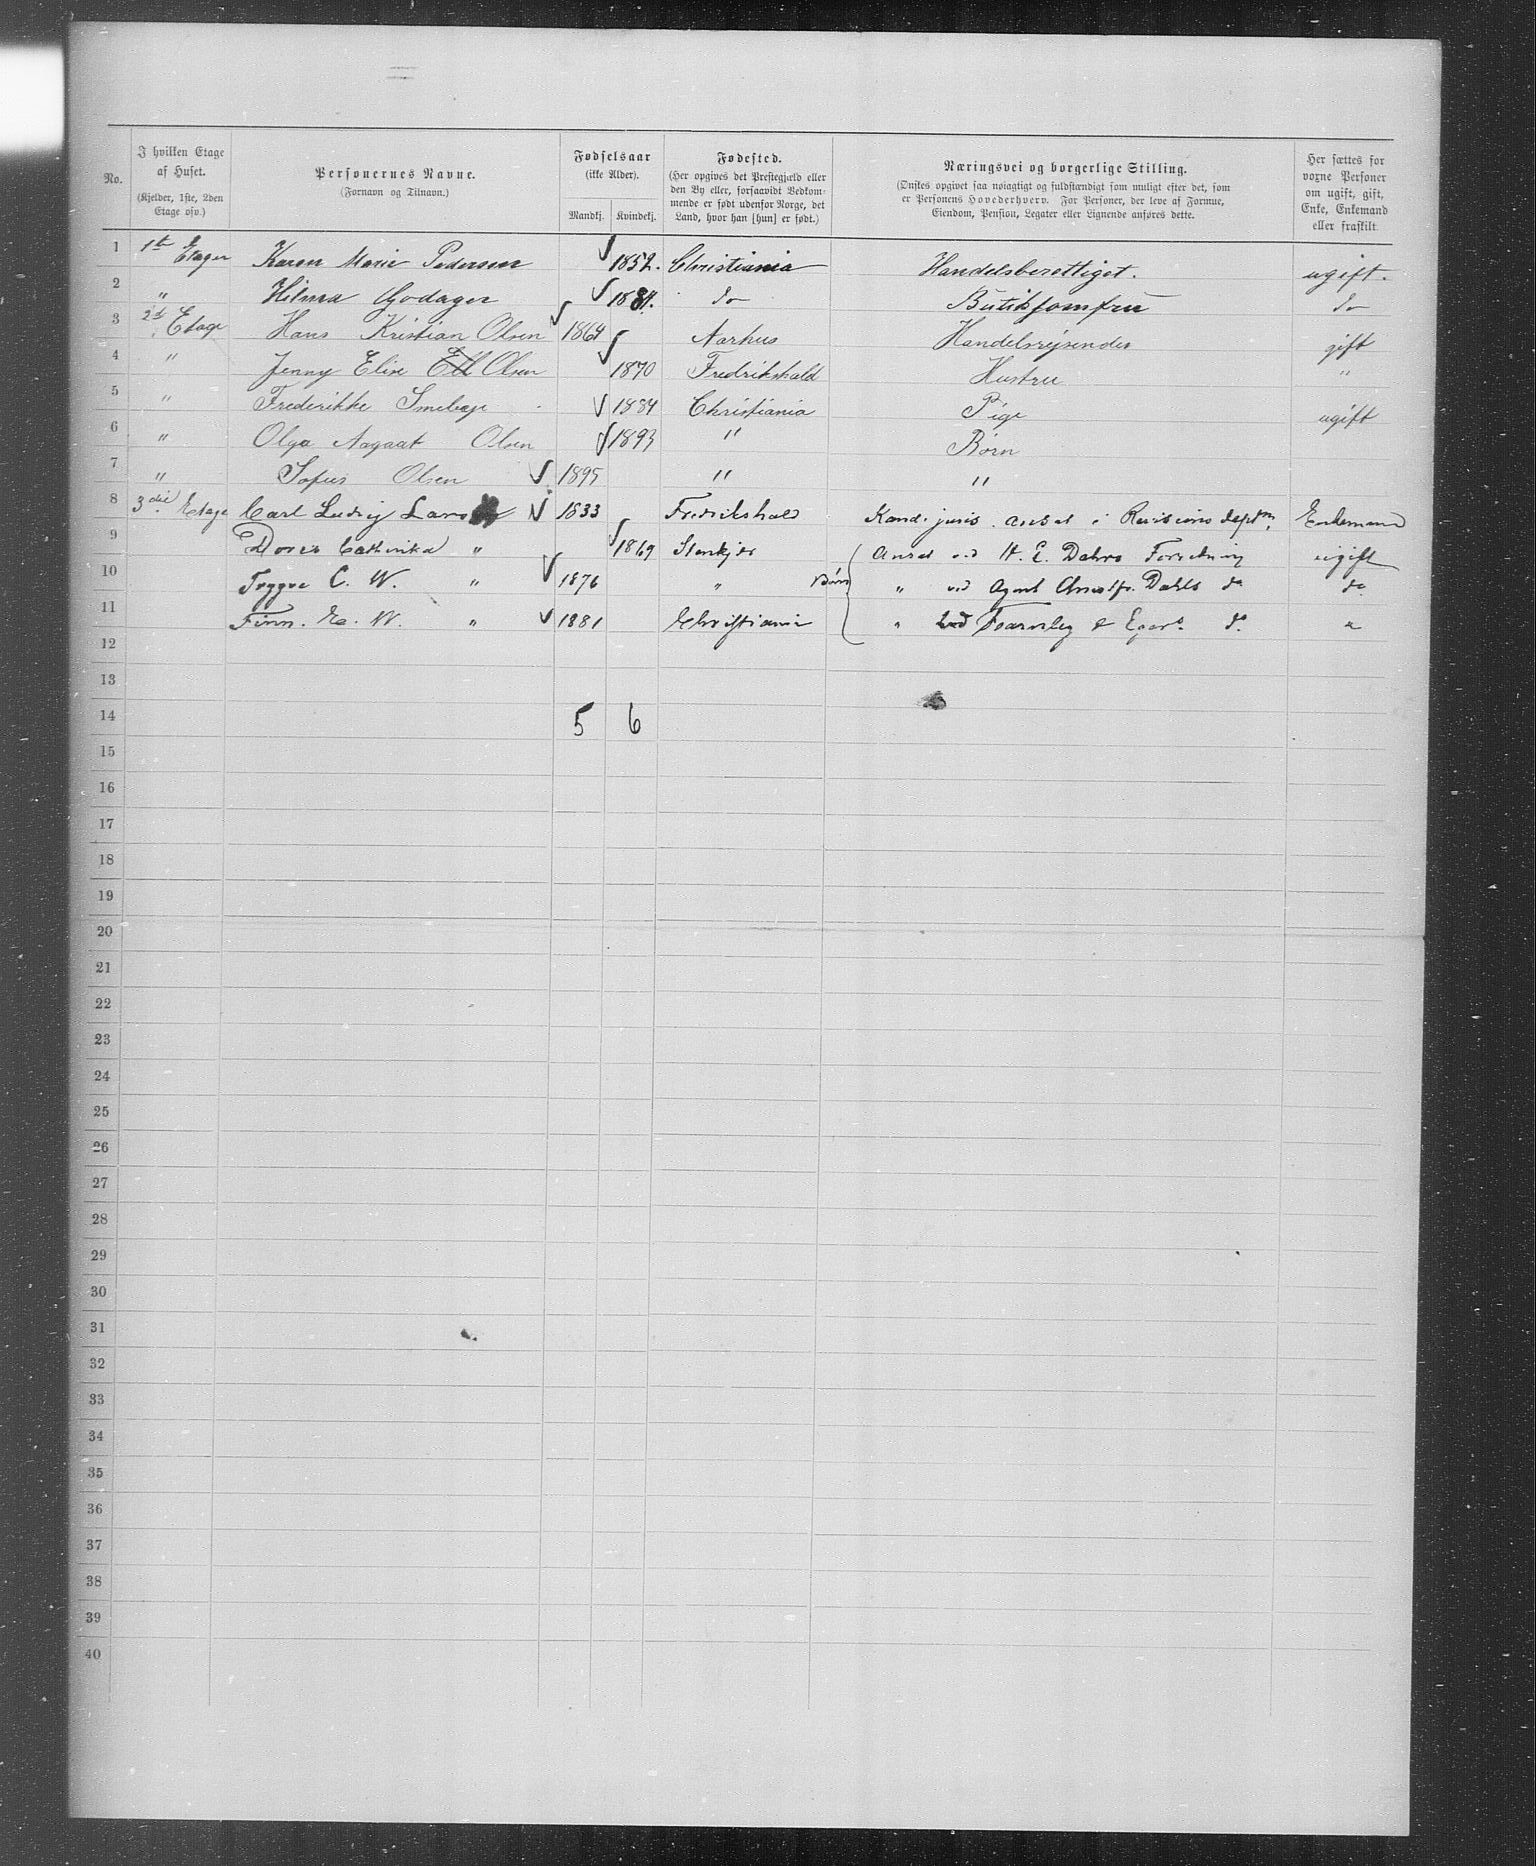 No.
I hvilken Etage af Huset. (Kjelder, 1ste, 2den Etage osv.)
Personernes Navne. (Fornavn og Tilnavn.)
Fødselsaar (ikke Alder). Mandkj. Kvindekj.
Fødested. (Her opgives det Prestegjæld eller den By eller, forsaavidt Vedkommende er født udenfor Norge, det Land, hvor han [hun] er født.)
Næringsvei og borgerlige Stilling. (Ønskes opgivet saa nøiagtigt og fuldstændigt som muligt efter det, som er Personens Hovederhverv. For Personer, der leve af Formue, Eiendom, Pension, Legater eller Lignende anføres dette.)
Her sættes for voxne Personer om ugift, gift, Enke, Enkemand eller fraskilt
1 1ste Etager Karen Marie Pedersen 1852. Christiania Handelsberettiget. ugift.
2 " Hilma Godager 1884. do Butikjomfru do
3 2d Etage Hans Kristian Olsen 1864 Aarhus Handelsrejsendes gift
4 " Jenny Elise Olsen 1870 Fredrikshald Hustru "
5 " Frederikke 1884 Christiania Pige ugift
6 " Olga Aagaat Olsen 1893 " Børn
7 " Sofus Olsen 1895 " "
8 3die Etage Carl Ludvig Larsen 1833 Fredrikshald Kand. juris. ansat i Revisions dept. Enkemand
9 Cathinka " 1869 Stenkjer Ansat ved H. E. Forretning ugift
10 Trygve C. W. " 1876 " Børn " ved Agent Dahls do do
11 Finn. E. W. " 1881 Christiania " ved Fearnley & Egers do "
12
13
14 5 6
15
16
17
18
19
20
21
22
23
24
25
26
27
28
29
30
31
32
33
34
35
36
37
38
39
40